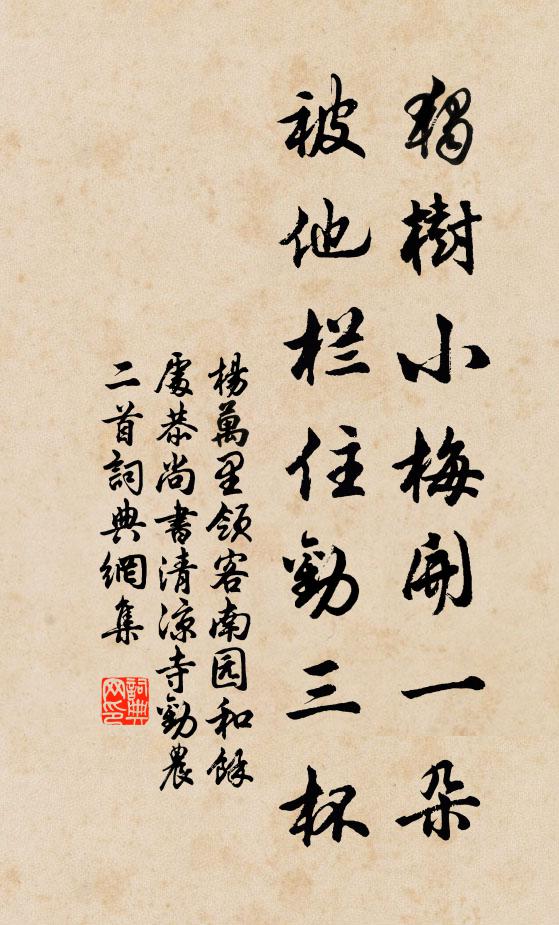 獨樹小梅開一朵
被他栏住勸三杯
楊萬里領客南园和餘
處恭尚書清涼寺勸農
二首詞典網集
詞典网印